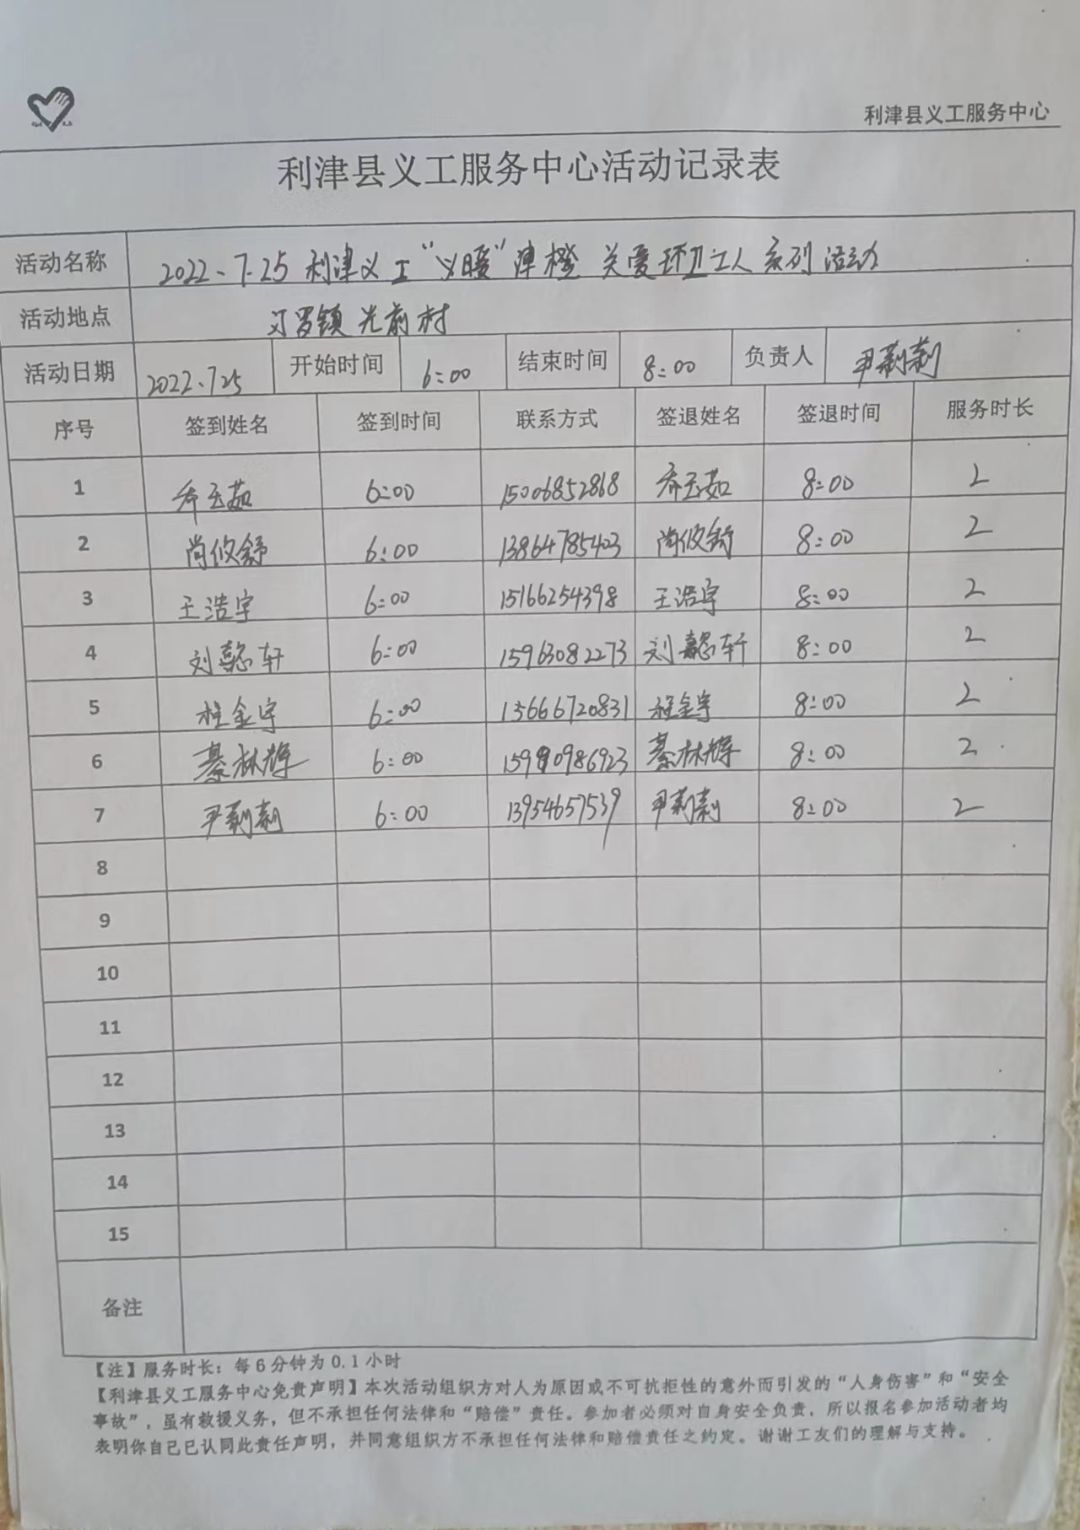 利津县义工服务中心
利津县义工服务中心活动记录表
活动名称 2022.7.25 利津义工“义暖”津橙 关爱环卫工人系列活动
活动地点 刁罗镇 光前村
活动日期 2022.7.25 开始时间 6:00 结束时间 8:00 负责人 尹莉莉
序号 签到姓名 签到时间 联系方式 签退姓名 签退时间 服务时长
1 乔玉茹 6:00 15006852868 乔玉茹 8:00 2
2 尚攸舒 6:00 13864785403 尚攸舒 8:00 2
3 王浩宇 6:00 15166254398 王浩宇 8:00 2
4 刘懿轩 6:00 15963082273 刘懿轩 8:00 2
5 程金宇 6:00 13666720831 程金宇 8:00 2
6 綦林辉 6:00 綦林辉 8:00 2
7 尹莉莉 6:00 13954657539 尹莉莉 8:00 2
8
9
10
11
12
13
14
15
备注
【注】服务时长：每6分钟为0.1小时
【利津县义工服务中心免责声明】本次活动组织方对人为原因或不可抗拒性的意外而引发的“人身伤害”和“安全
事故”，虽有救援义务，但不承担任何法律和“赔偿”责任。参加者必须对自身安全负责，所以报名参加活动者均
表明你自己已认同此责任声明，并同意组织方不承担任何法律和赔偿责任之约定。谢谢工友们的理解与支持。